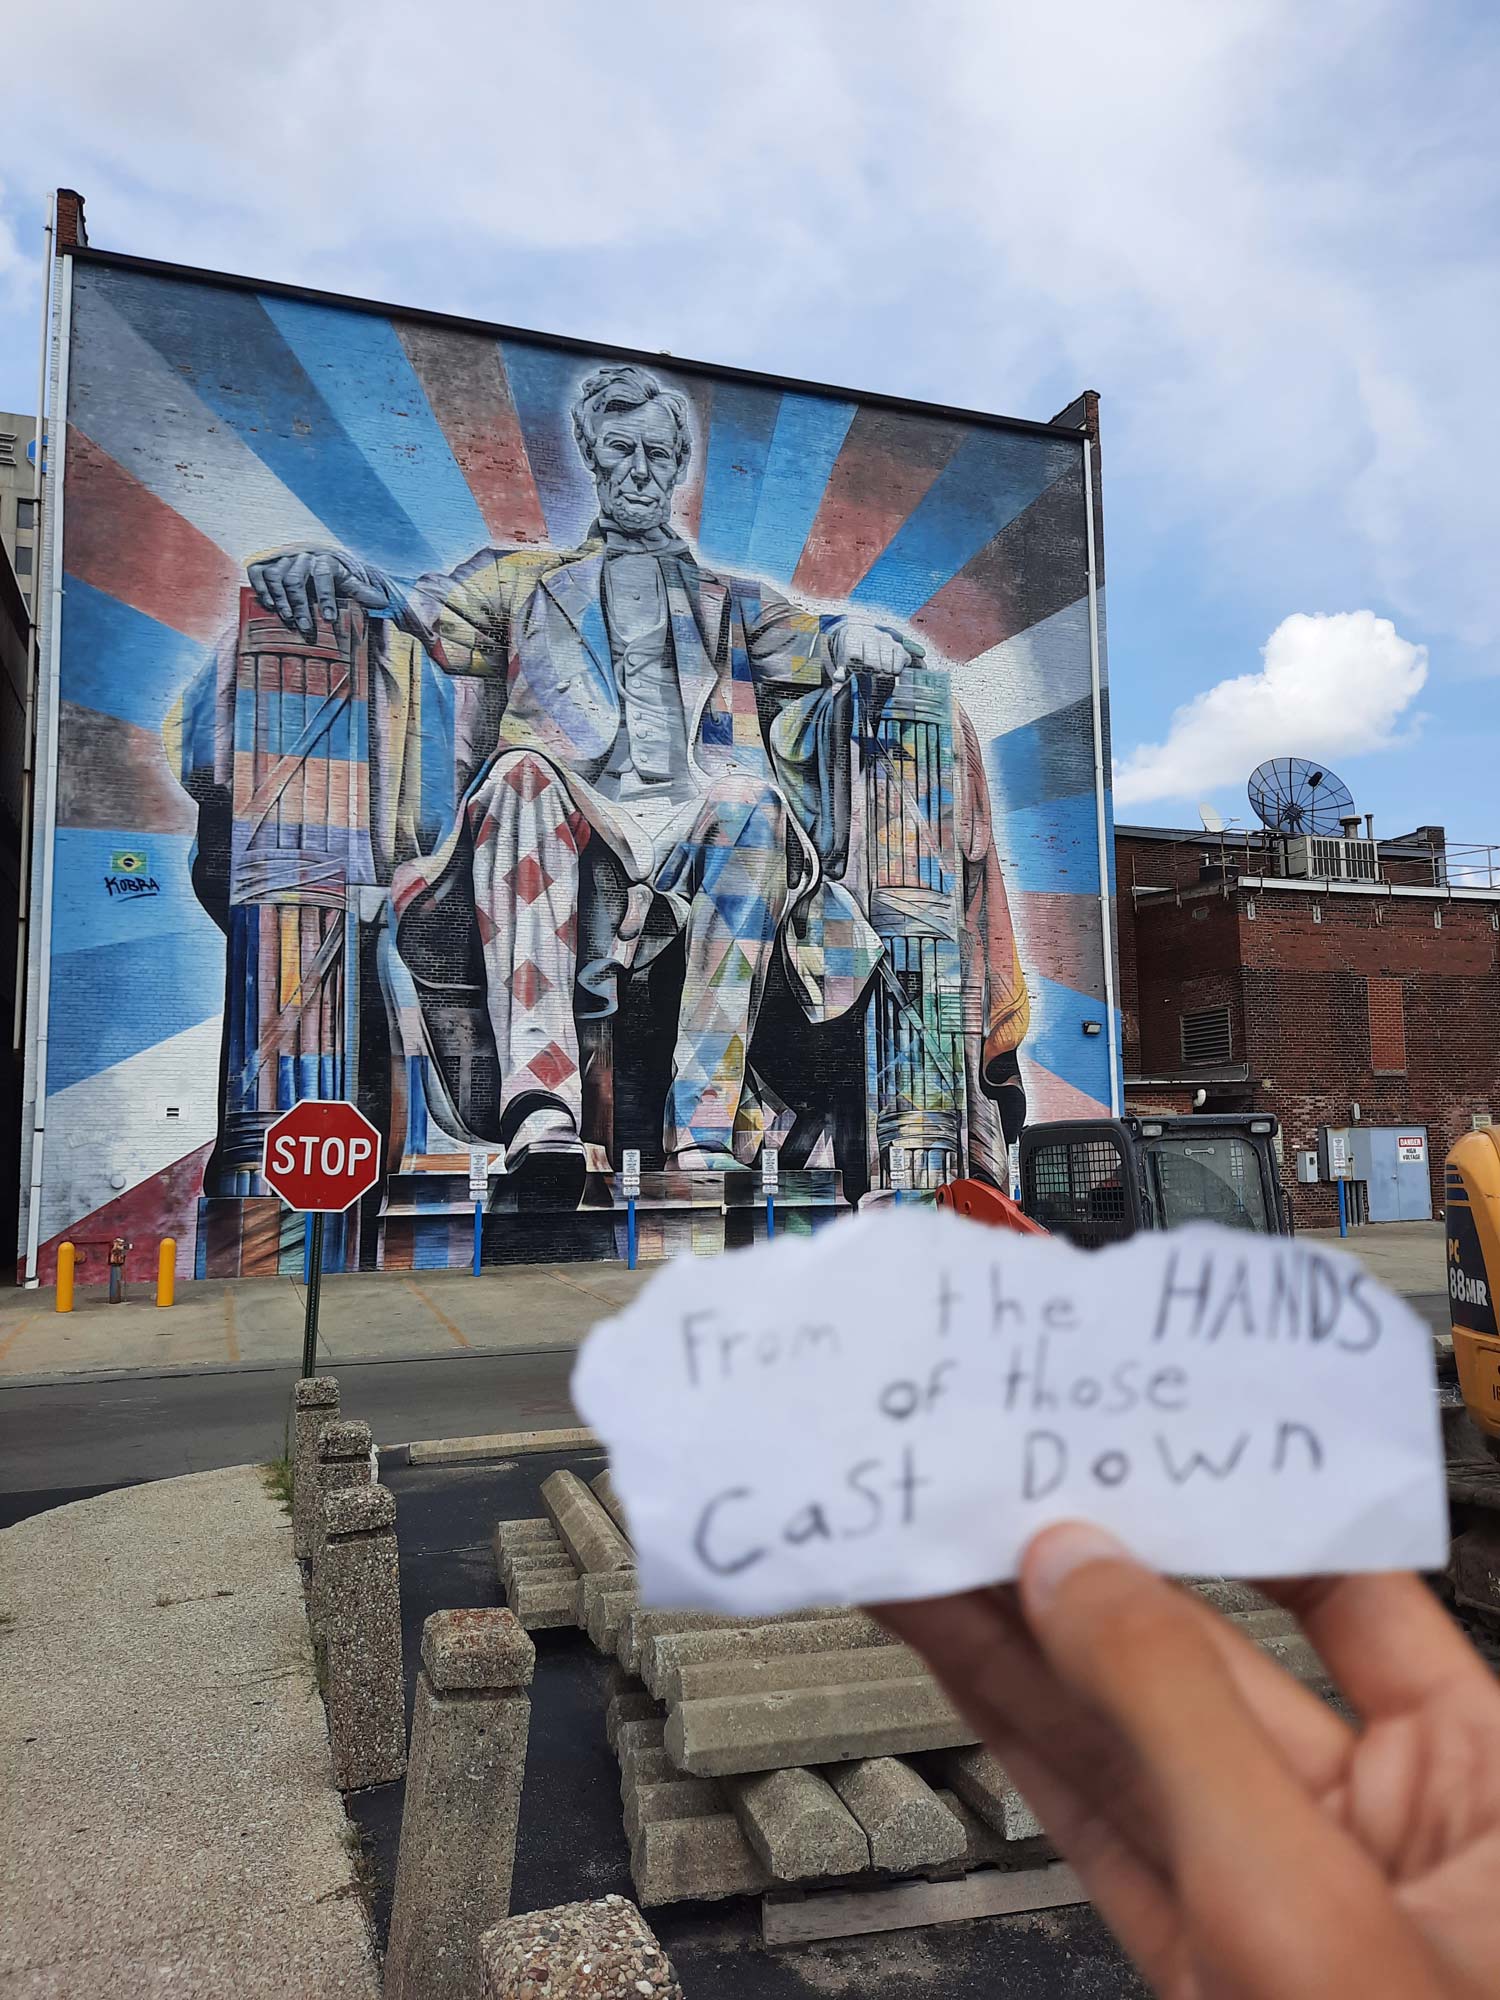 E
KOBRA
STOP
DANGER
HIGH
VOLTAGE
PC
88MR
From the HANDS
of those
Cast Down